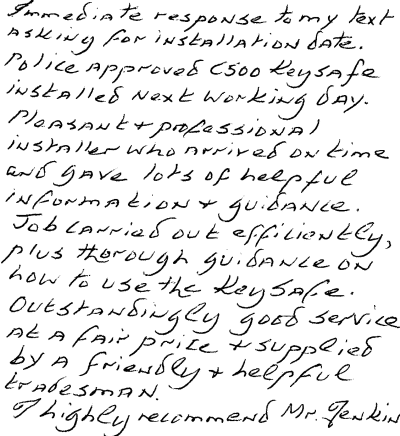 Immediate response to my text
asking for installation date.
Police approved C500 Keysafe
installed next working day.
Pleasant + professional
installer who arrived on time
and gave lots of helpful
information + guidance.
Job carried out efficiently,
plus thorough guidance on
how to use the KeySafe.
Outstandingly good service
at a fair price + supplied
by a friendly + helpful
tradesman.
I highly recommend Mr. Jenkin